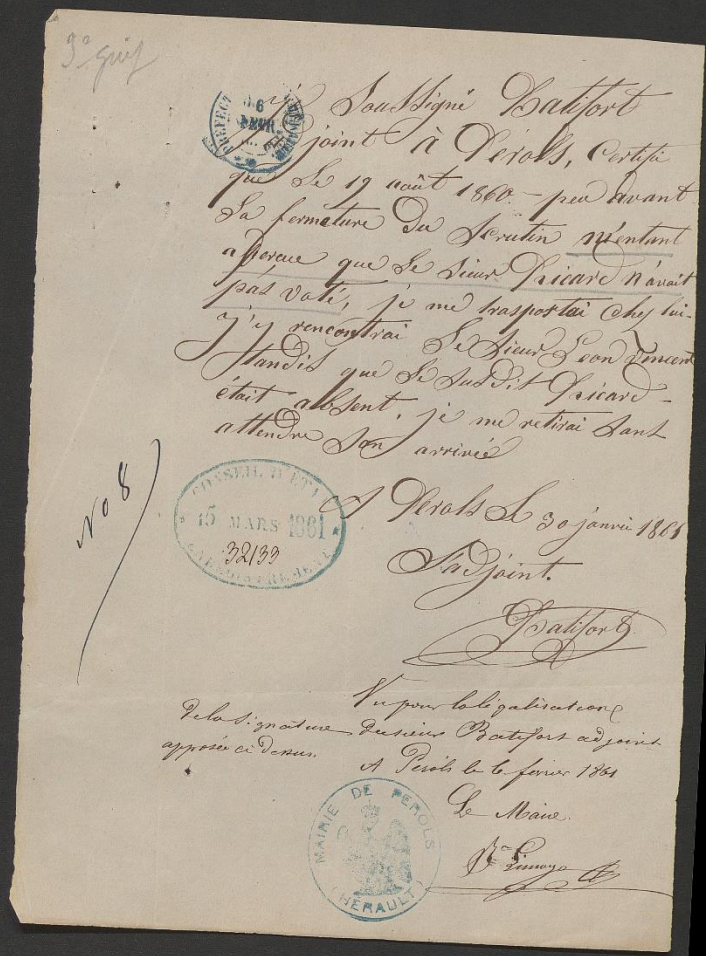 3e Grief
PREFECT
6
FEVR
Je soussigné Batifort
adjoint à Pérols, certifie
que le 19 août 1860 - peu avant
la fermeture du scrutin m'entant
aperçue que le sieur Ricard n'avait
pas voté, je me trasportai chez lui-
j'y rencontrai le sieur Léon Vincent
tandis que le susdit Ricard -
était absent, je me retirai sans
attendre son arrivée
No 8
CONSEIL D'ETAT
15 MARS 1861
32133
ENREGISTREMENT
A Pérols le 30 janvié 1861
L'adjoint.
Batifort
Vu pour la légalisation
de la signature du sieur Batifort adjoint
apposée ci dessus.
A Pérols le 6 février 1861
Le Maire
MAIRIE DE PEROLS
(HÉRAULT)